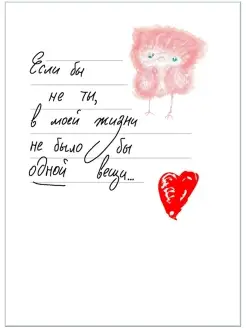 Если бы
не ты,
в моей жизни
не было бы
одной вещи...